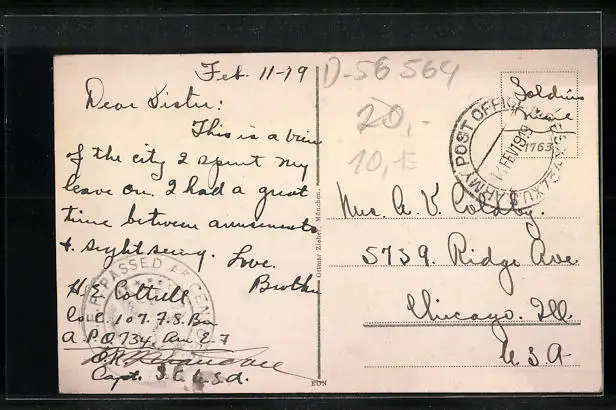 Feb. 11-19
Dear Sister:
This is a view
of the city I spent my
leave on. I had a great
time between amusements
& sight seeing. Love.
Brother
H. E. Cottrell
Co. C. 107. F. S. Bn
A.P.O. 734. Am E. F
Capt. S.C. U.S.A.
PASSED AS CEN
D-56 564
20,-
10,-
Soldiers
U.S. ARMY POST OFFICE
14 FEV 1919
763
Mrs. A. V. Coldby.
5739. Ridge Ave
Chicago. Ill.
U.S.A
Ottmar Zieher, München.